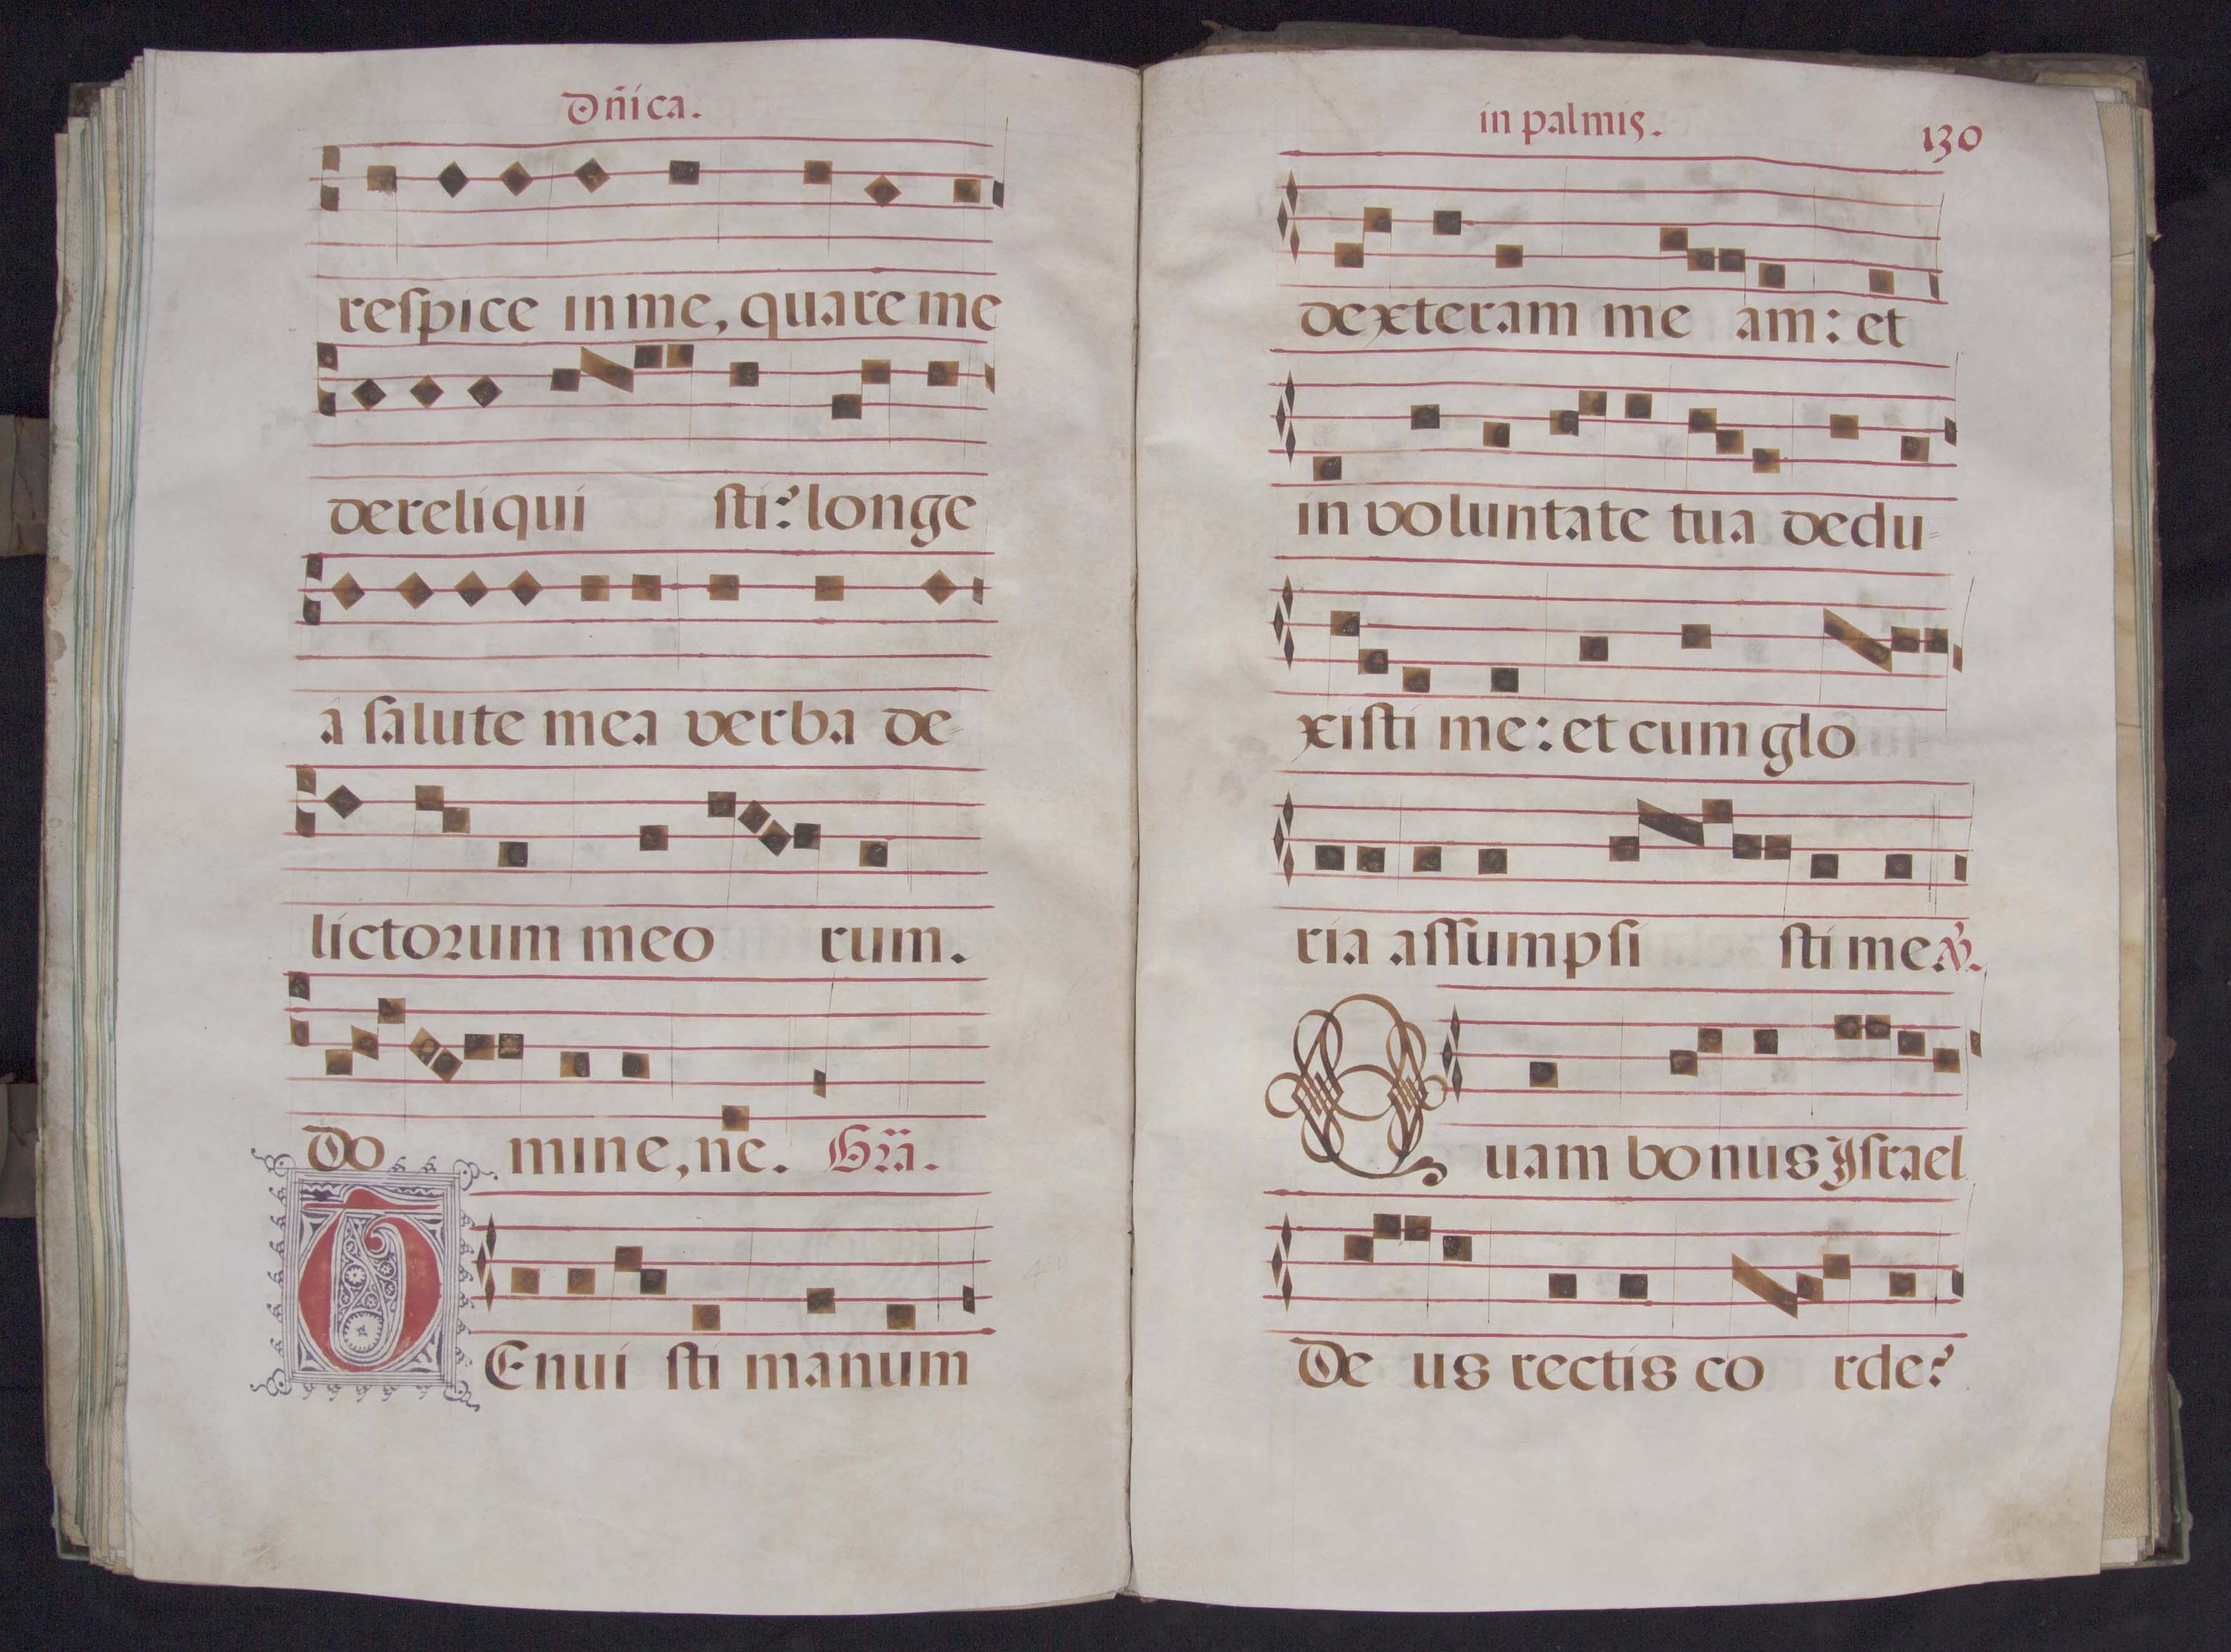 Dñica.
respice in me, quare me
dereliqui sti? longe
a salute mea verba de-
lictorum meo rum.
Do mine, ne. Gra.
TEnui sti manum
in palmis. 130
dexteram me am: et
in voluntate tua dedu-
xisti me: et cum glo
ria assumpsi sti me. V.
Quam bonus Israel
De us rectis co rde?